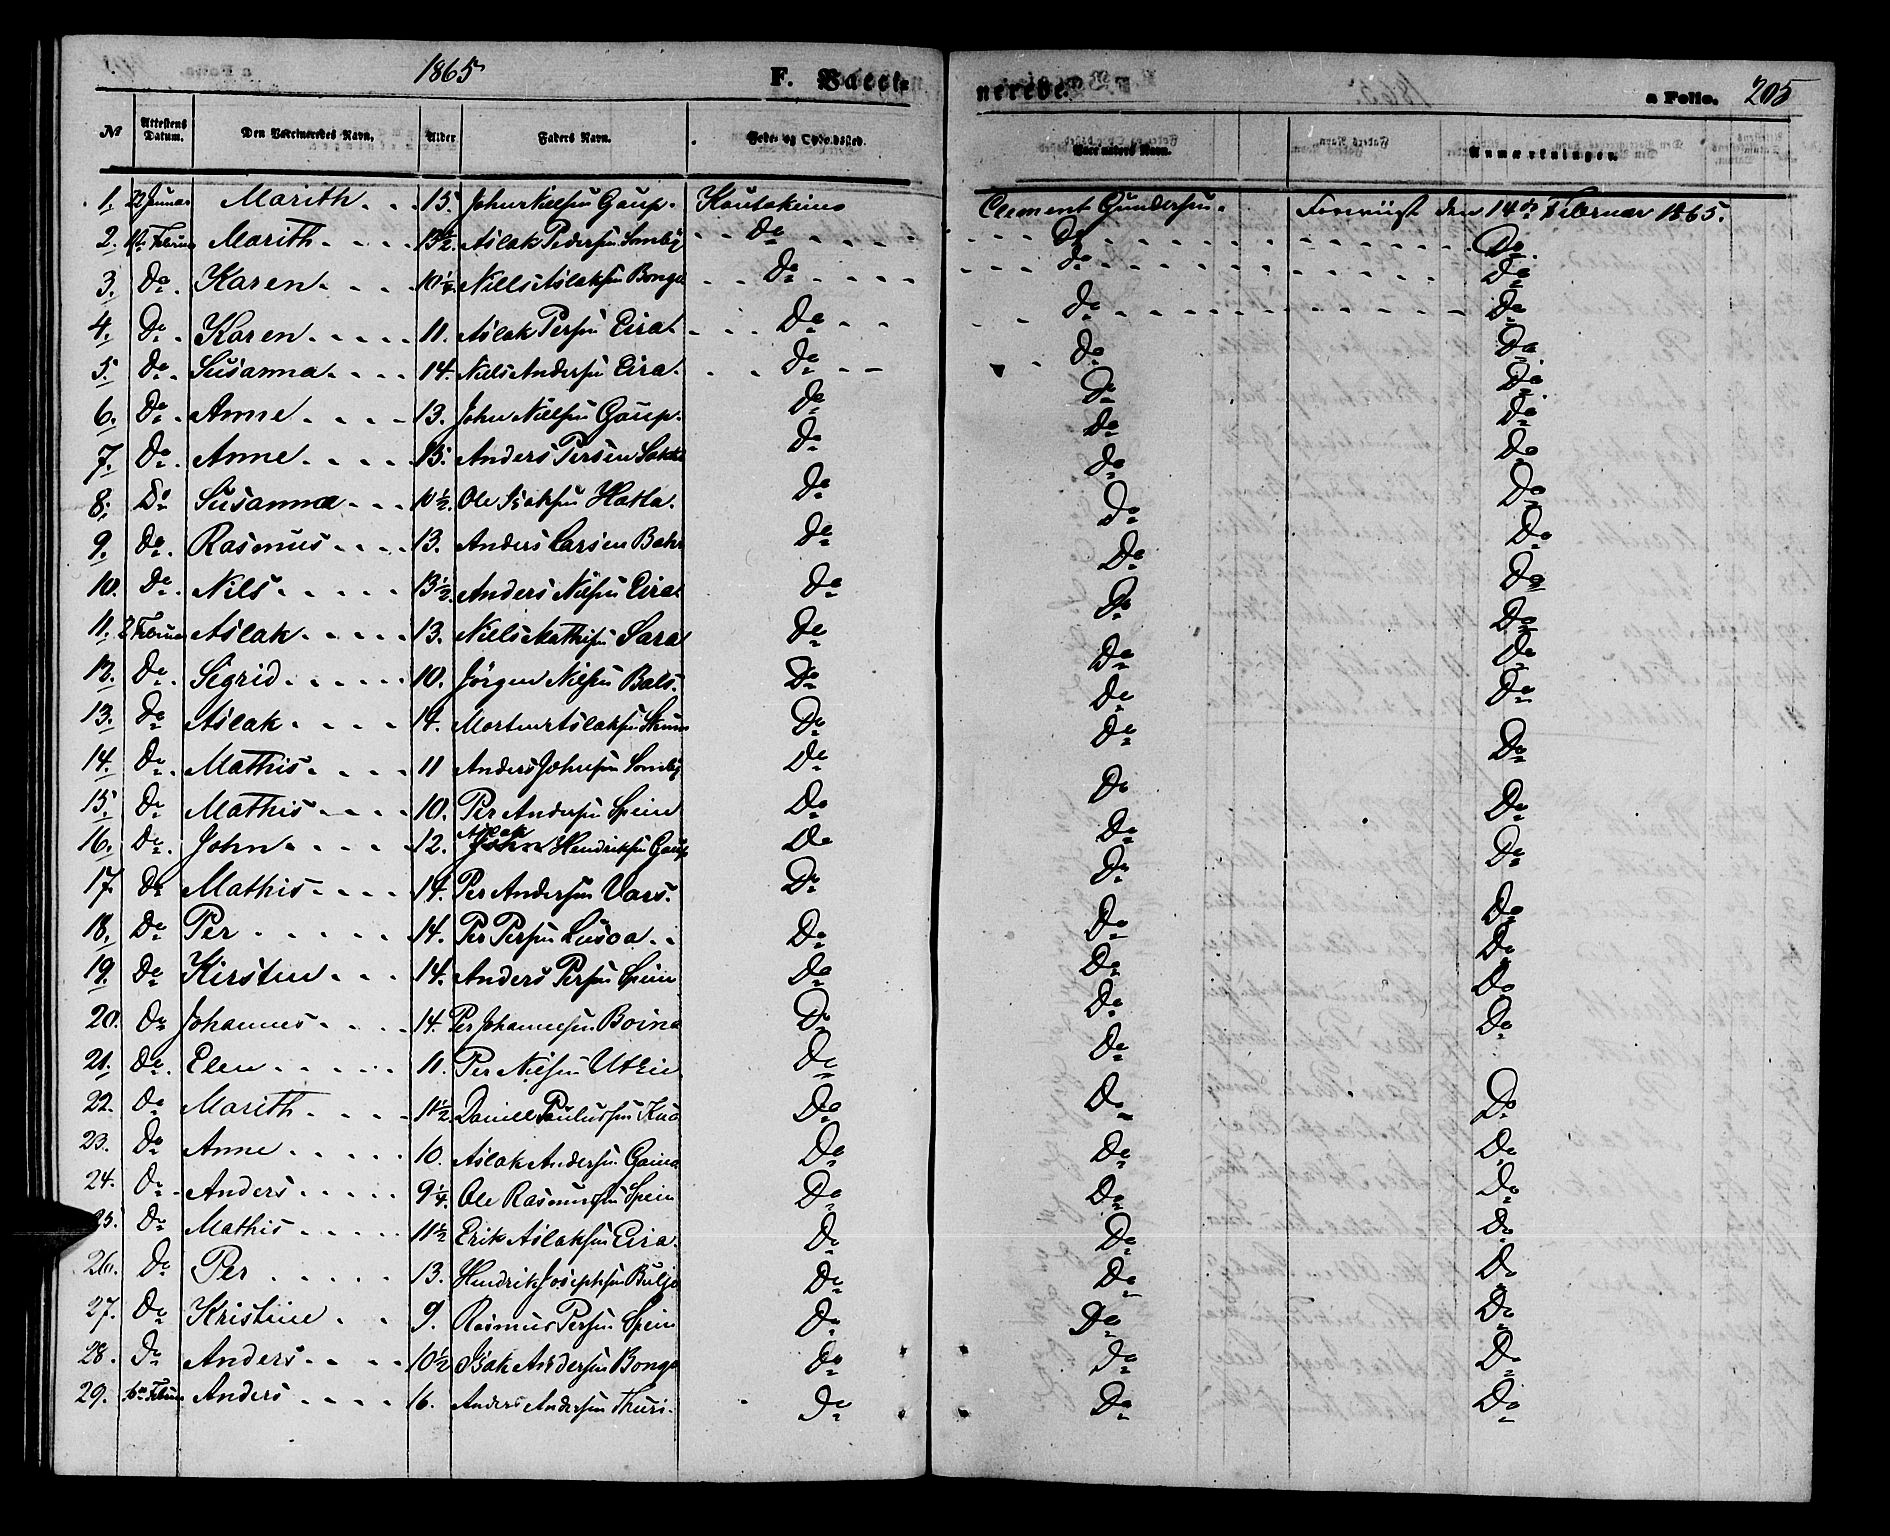 1865 F. Vaccinerede. a Folio. 205
№ Attestens Datum. Den Vaccineredes Navn. Alder Faders Navn. Føde- og Opholdssted. Vaccinators Navn. Anmærkninger.
1. 22 Januar Marith 15. John Nielsen Gaup. Koutokeino Clement Gundersen. Foreviist den 14de Februar 1865.
2. Februar Marith 13½ Aslak Pedersen Somby Do Do Do
3. Do Karen 10¼ Nills Aslaksen Bonga Do do Do
4. Do Karen 11. Aslak Persen Eira Do do Do
5. Do Susanna 14. Niels Andersen Eira do do Do
6. Do Anne 13. John Nielsen Gaup. do Do Do
7. Do Anne 15. Anders Persen do do Do
8. Do Susanna 10½ Ole Isaksen Hatta. Do do Do
9. do. Rasmus 13. Anders Larsen Bahr do Do Do
10. Do Nils 13½ Anders Nilsen Eira do Do Do
11. 2 Februar Aslak 13. Niels Mathisen Sara do Do Do
12. Do. Sigrid 10. Jörgen Nilsen Bals. Do Do Do
13. Do Aslak 14. Morten Aslaksen Do do Do
14. Do. Mathis 11 Anders Johnsen Somby Do do Do
15. Do Mathis 10. Per Andersen Spein Do Do Do
16. Do. John 12. Aslak Hendriksen Gaup Do Do Do
17. Do Mathis 14. Per Andersen Vars. Do Do Do
18. Do Per 14. Per Persen Do Do Do
19. Do Kirsten 14. Anders Persen Spein Do Do Do
20. Do Johannes 14. Per Johannesen Boine Do Do Do
21. Do. Elen 11. Per Nilsen Utsi Do Do
22. Do Marith 11½ Daniel Paulussen Do Do Do
23. Do Anne 10. Aslak Andersen Gaino Do Do Do
24. Do Anders 9¼ Ole Rasmussen Spein Do Do Do
25. Do Mathis 11½ Erik Aslaksen Eira. Do Do Do
26. Do Per 13. Hendrik Josephsen Buljo Do Do Do
27. Do Kristine 9. Rasmus Persen Spein Do Do Do
28. Do Anders 10½ Isak Andersen Bonga Do Do Do
29. Februar Anders 16. Anders Andersen Thuri. Do Do Do